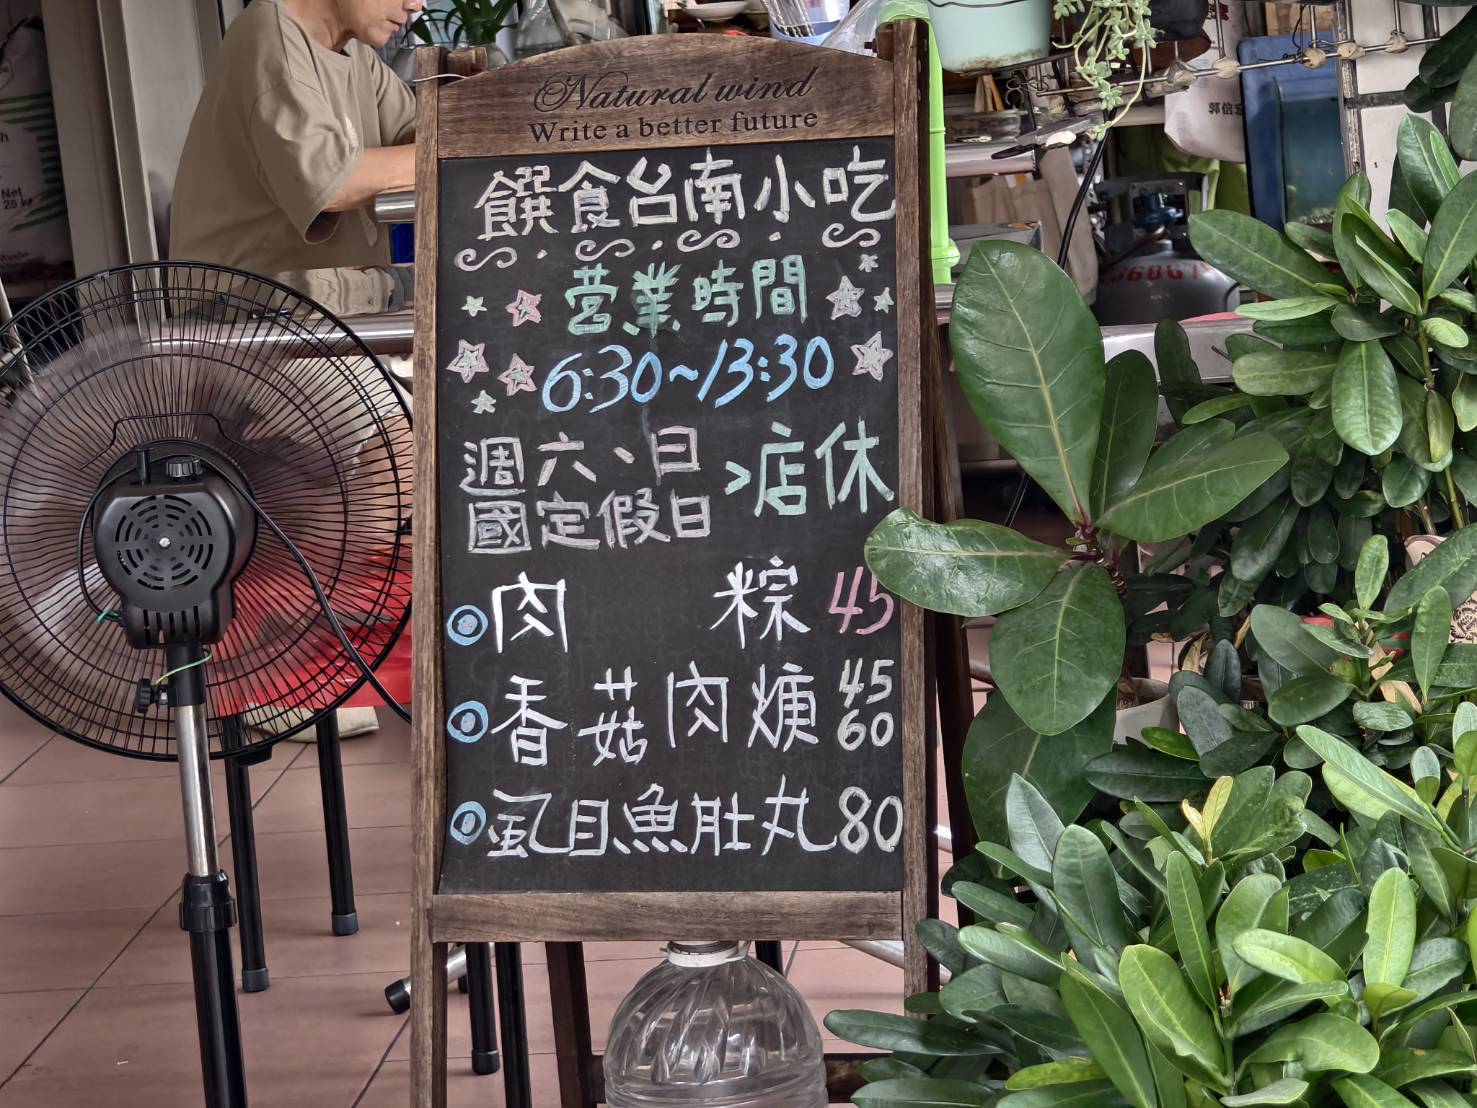 Natural wind
Write a better future
饌食台南小吃
营業時間
6:30~13:30
週六、日
國定假日
>店休
肉 粽 45
香菇肉焿 45
60
虱目魚肚丸 80
Net